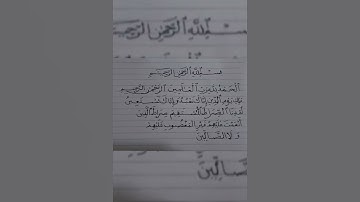 بسم الله الرحمن الرحيم
بسم الله الرحمن الرحيم
الحمد لله رب العالمين الرحمن الرحيم
ملك يوم الدين إياك نعبد وإياك نستعين
اهدنا الصراط المستقيم صراط الذين
أنعمت عليهم غير المغضوب عليهم
ولا الضالين
الضالين